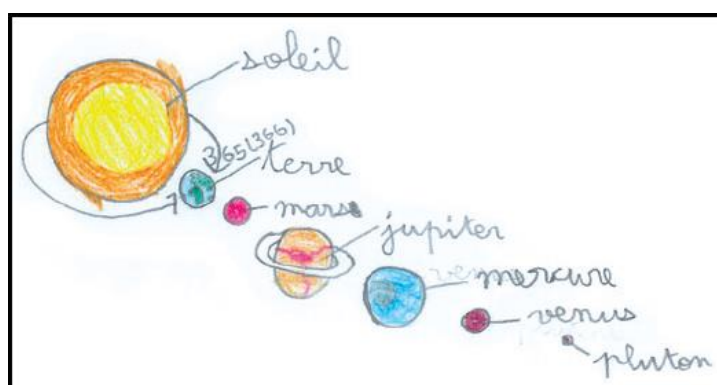 soleil
365(366)
terre
mars
jupiter
mercure
venus
pluton